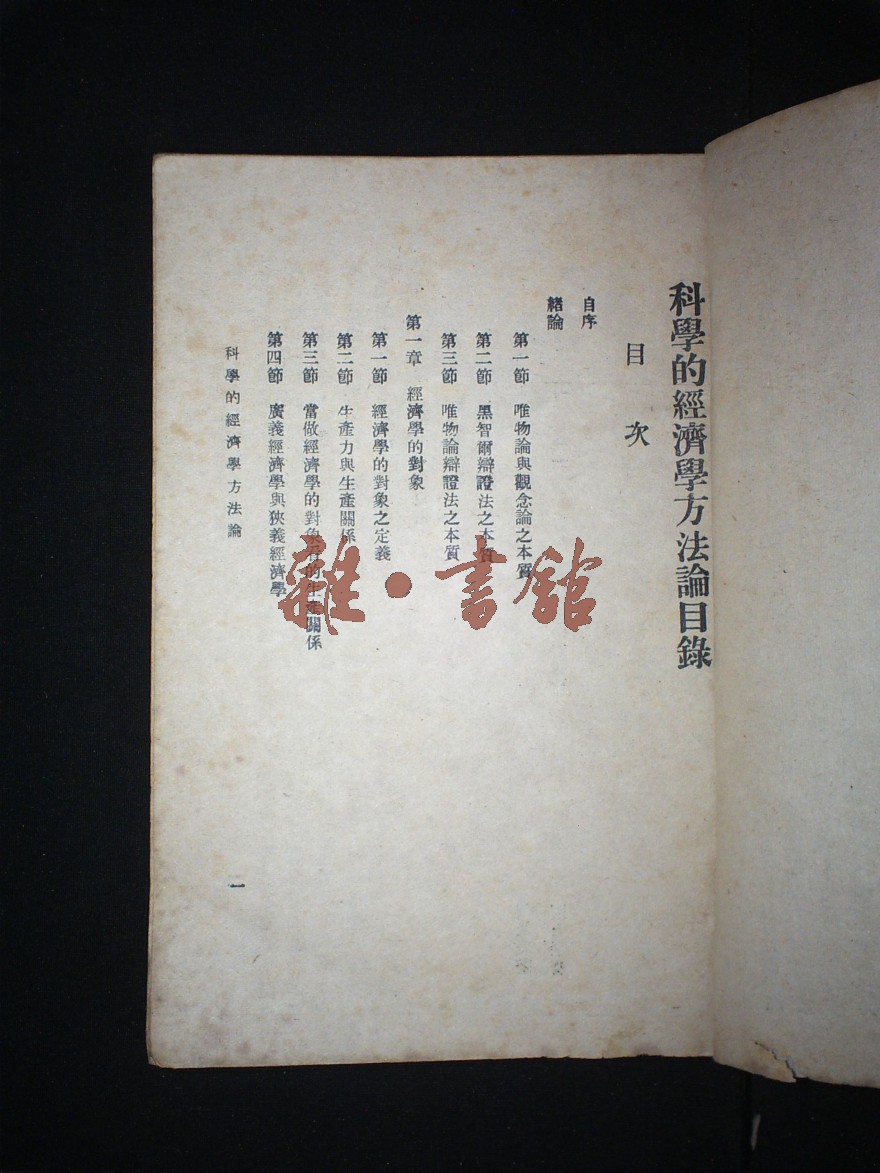 科學的經濟學方法論目錄
目次
自序
緒論
第一節 唯物論與觀念論之本質
第二節 黑智爾辯證法之本質
第三節 唯物論辯證法之本質
第一章 經濟學的對象
第一節 經濟學的對象之定義
第二節 生產力與生產關係
第三節 當做經濟學的對象看的生產關係
第四節 廣義經濟學與狹義經濟學
科學的經濟學方法論
一
雜·書館